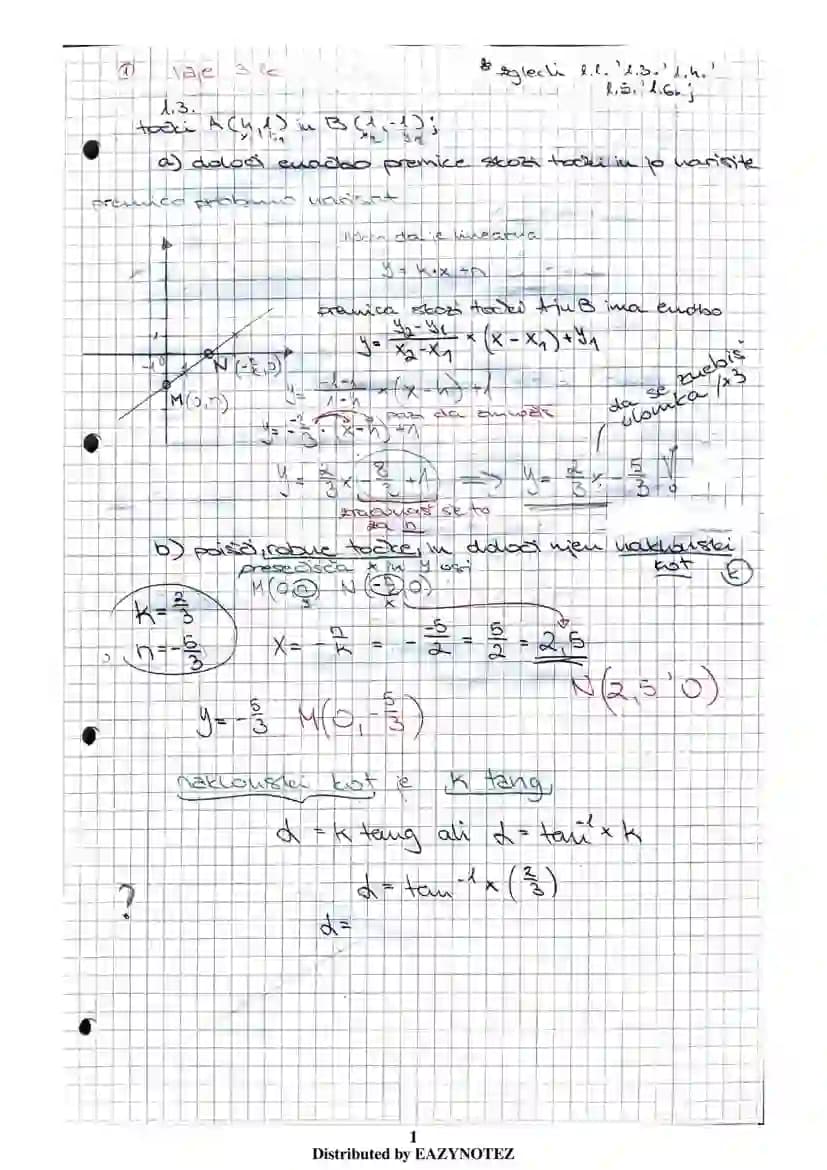 ① vaje 3
* zgledi 1.2., 1.3., 1.4.,
1.5., 1.6. ;
1.3.
točki A(4,1) in B(1,-1);
a) določi enačbo premice skozi točki in jo narišite
premico
da je linearna
y = k·x + n
premica skozi točki A in B ima enačbo
y = \frac{y_2-y_1}{x_2-x_1} × (x - x_1) + y_1
N(-\frac{n}{k}, 0)
M(0,n)
y = \frac{-1-1}{1-4} × (x - 4) + 1
pazi da zmnožiš
da se znebiš
ulomka /×3
y = \frac{-2}{-3} · (x - 4) + 1
y = \frac{2}{3}x - \frac{8}{3} + 1 ⟹ y = \frac{2}{3}x - \frac{5}{3}
se to
za n
b) poišči, robne točke, in določi njen naklonski
kot
presečišča x in y osi
M(0,n) N(-\frac{n}{k}, 0)
y x
k = \frac{2}{3}
n = -\frac{5}{3}
x = -\frac{n}{k} = -\frac{-5}{2} = \frac{5}{2} = 2,5
N(2,5 ' 0)
y = -\frac{5}{3} M(0, -\frac{5}{3})
naklonski kot je k tang
α = k tang ali α = tan⁻¹ × k
α = tan⁻¹ × (\frac{2}{3})
?
α =
1
Distributed by EAZYNOTEZ